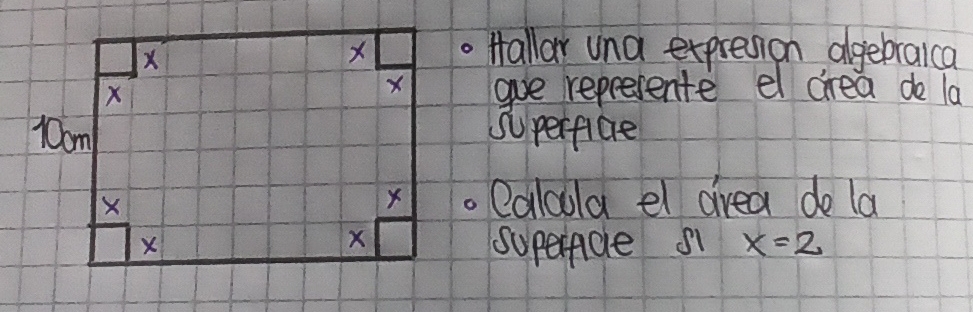 x x
x x
10cm
x x
x x
• Hallar una expresion algebraica
que represente el área de la
superficie
• Calcula el área de la
superficie si x=2